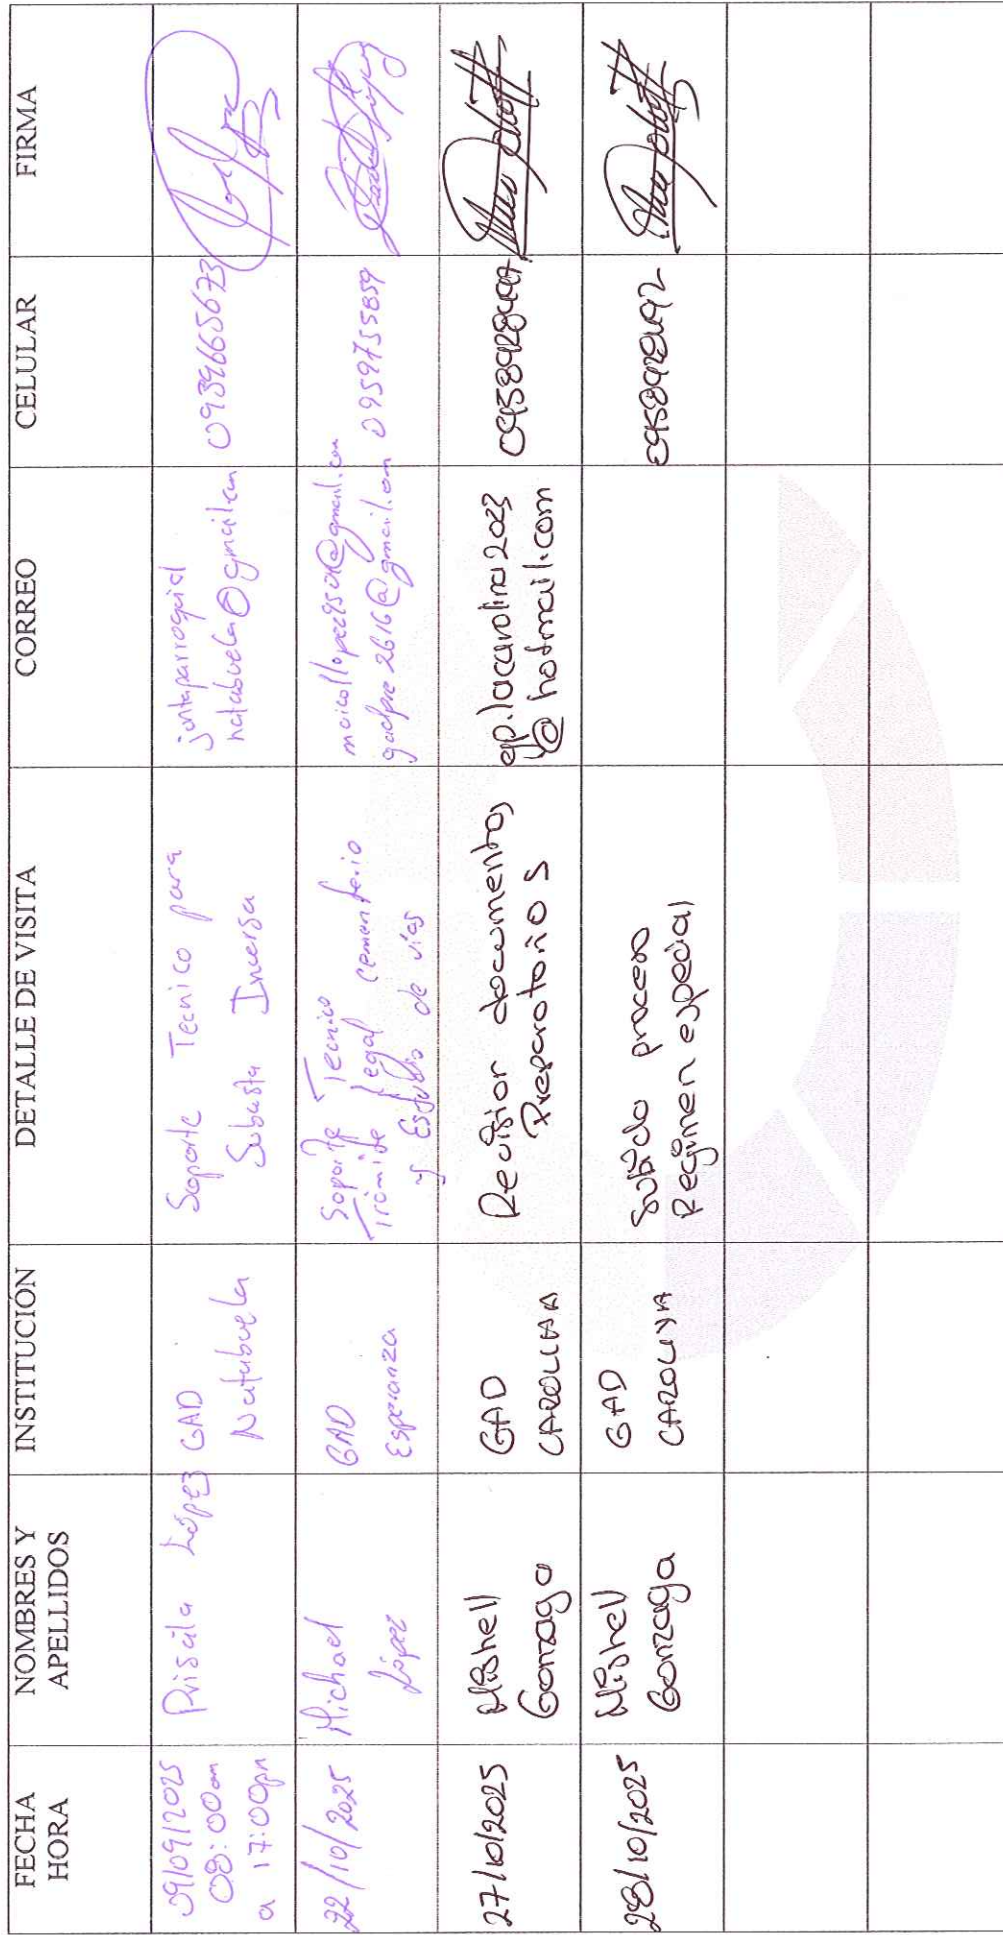 FECHA HORA
NOMBRES Y APELLIDOS
INSTITUCIÓN
DETALLE DE VISITA
CORREO
CELULAR
FIRMA
09/09/2025
08:00am
a 17:00pm
Priscila López
GAD
Natabuela
Soporte Tecnico para
Subasta Inversa
juntaparroquial
natabuela@gmail.com
0939665673
22/10/2025
Michael
López
GAD
Esperanza
Soporte Tecnico
Trámite legal cementerio
y Estudio de vías
0959755859
27/10/2025
Mishell
Gonzaga
GAD
CAROLINA
Revisior documentos
Preparatorios
ep.lacarolina2023
@hotmail.com
28/10/2025
Mishell
Gonzaga
GAD
CAROLINA
Subido proceso
Regimen especial